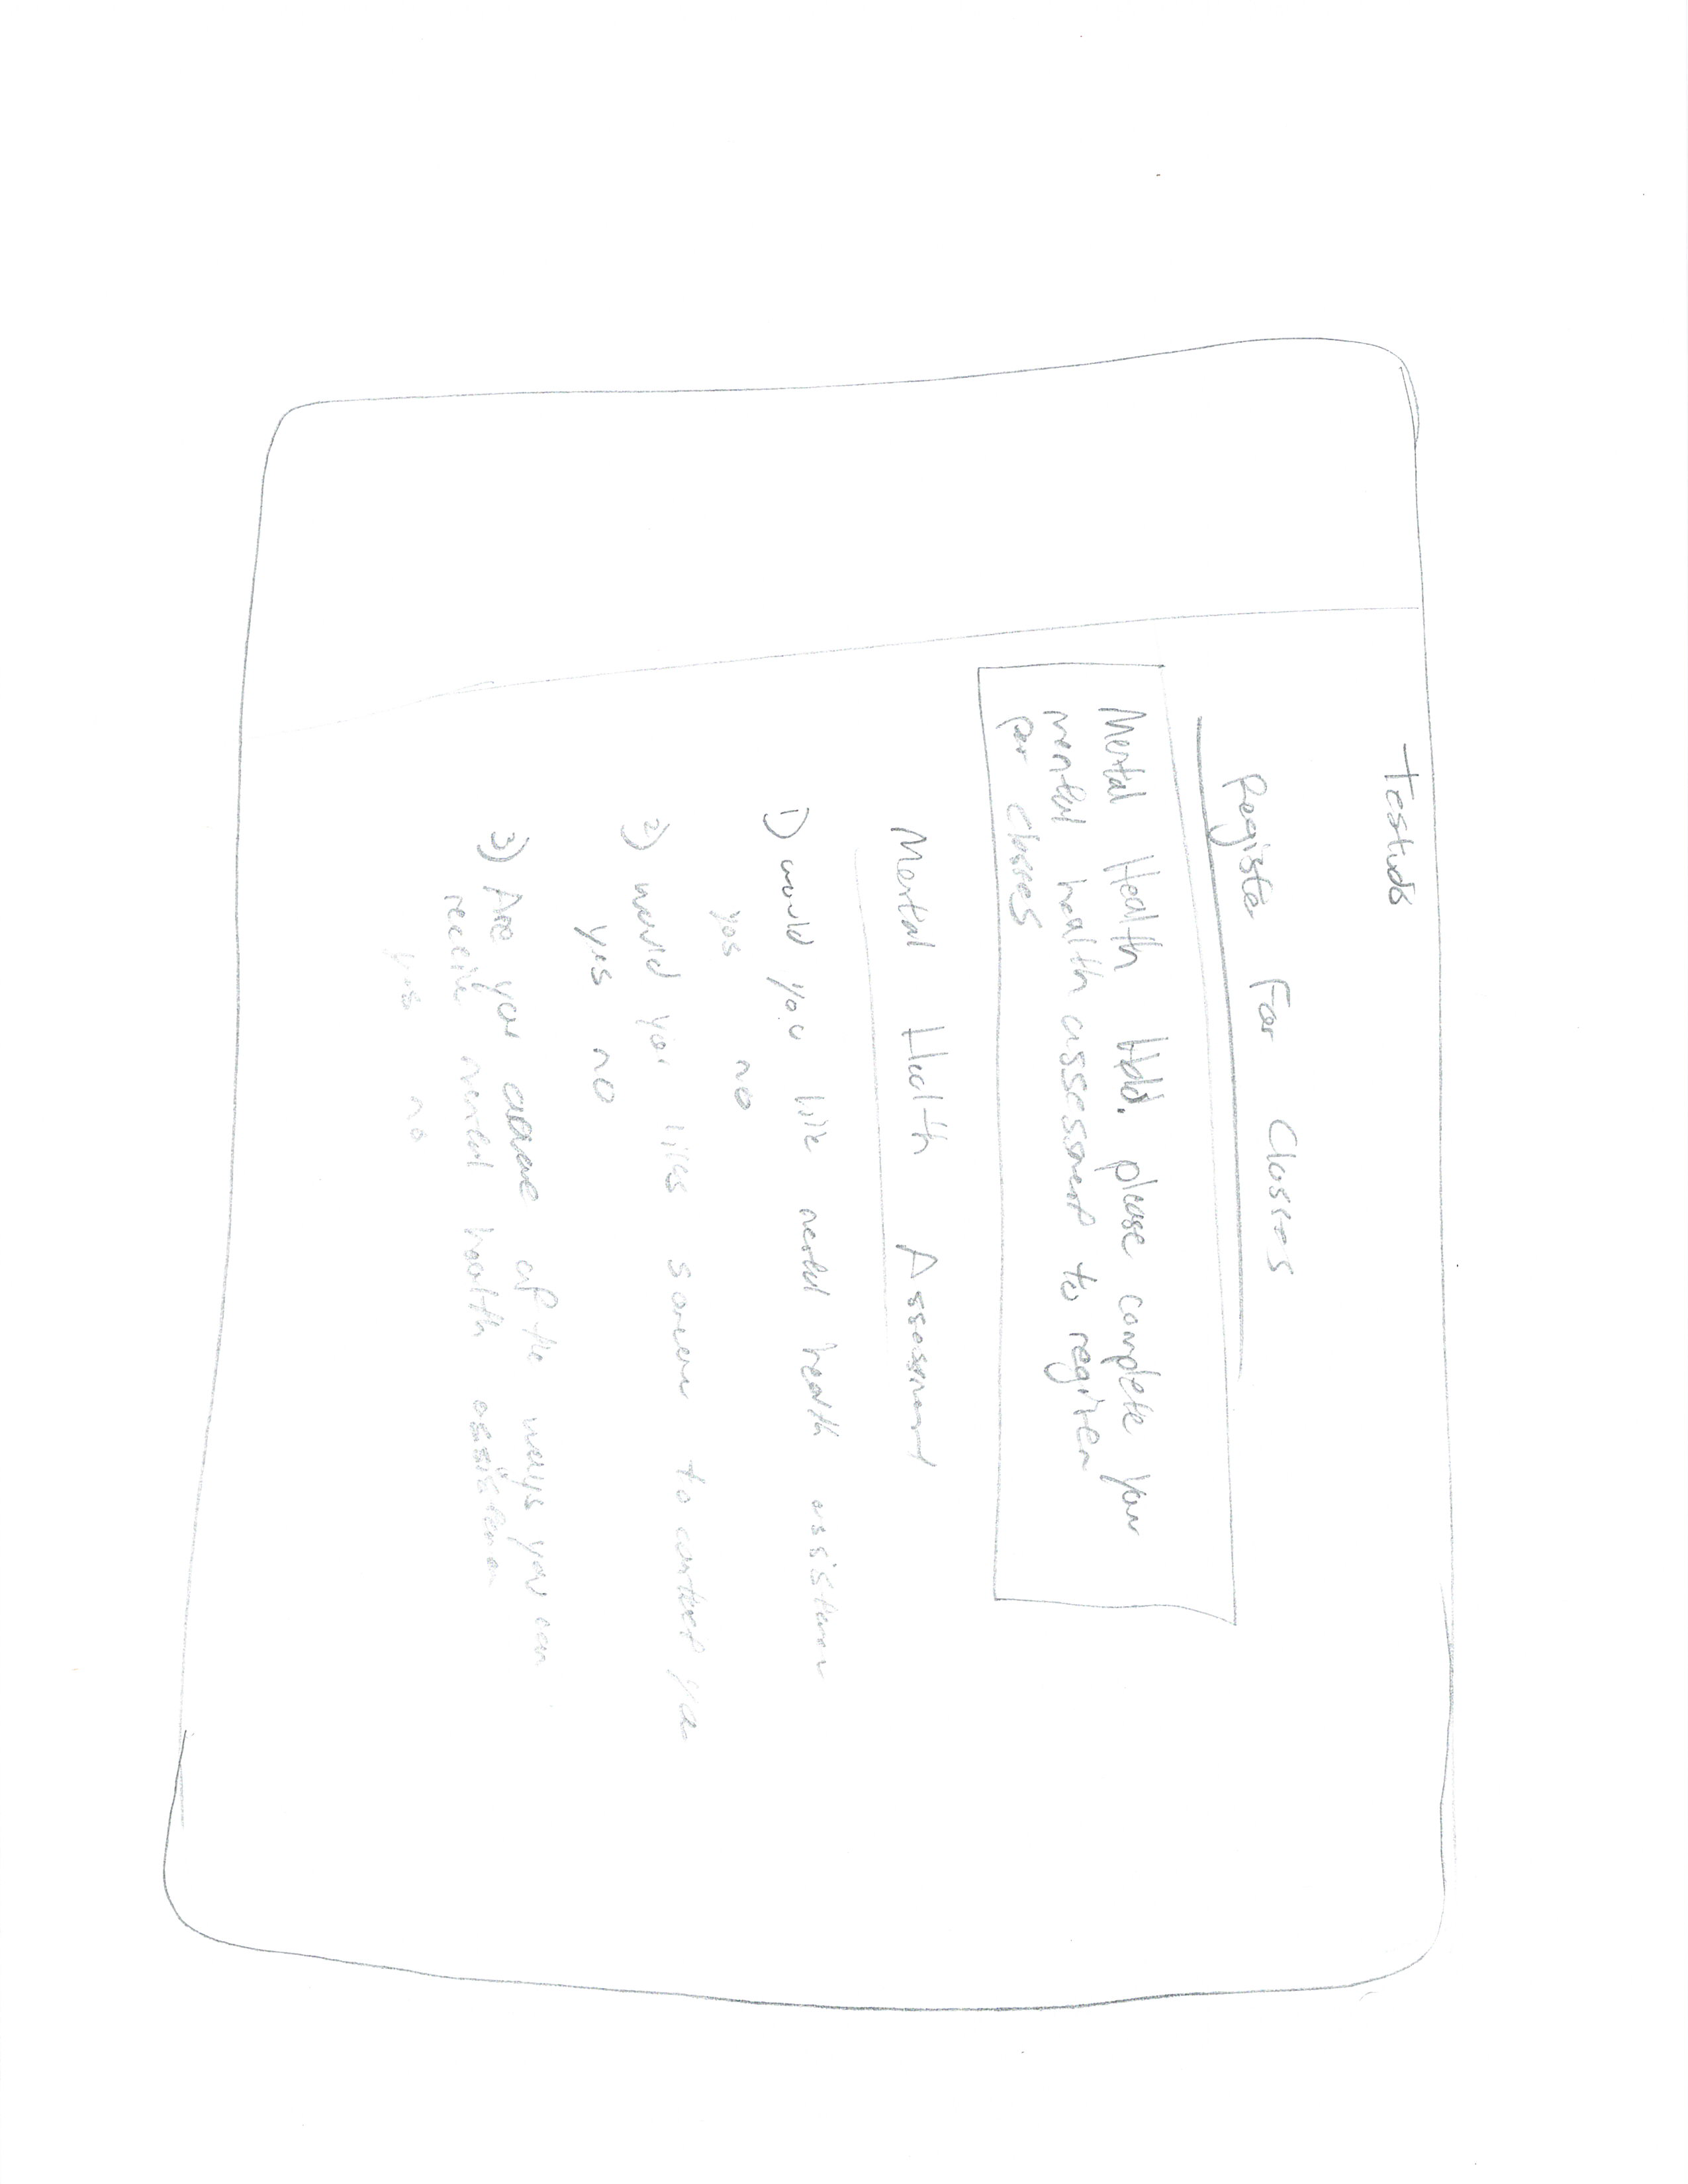 Testudo
Register For Classes
Mental Health Hold. please complete your
mental health assessment to register
for classes
Mental Health Assessment
1) would you like mental health assistance
yes no
2) would you like someone to contact you
yes no
3) Are you aware of the ways you can
receive mental health assistance
yes no